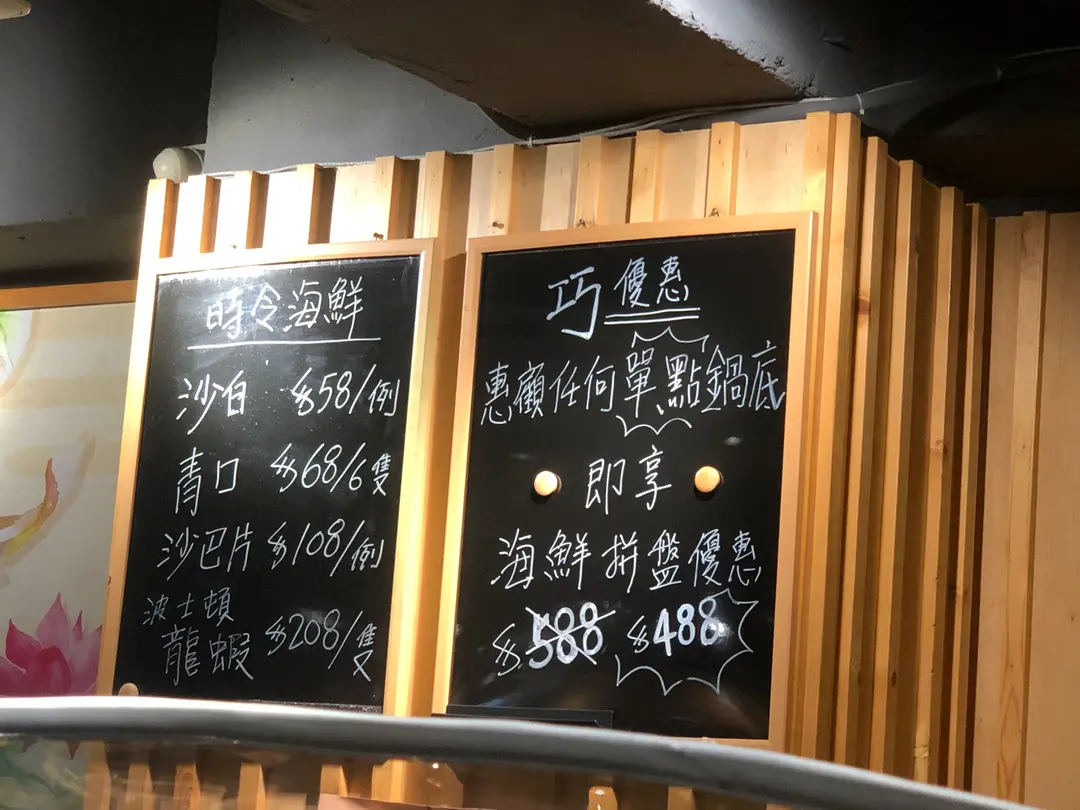 時令海鮮
沙白 $58/例
青口 $68/6隻
沙巴片 $108/例
波士頓
龍蝦 $208/隻
巧優惠
惠顧任何單點鍋底
即享
海鮮拼盤優惠
$588 $488